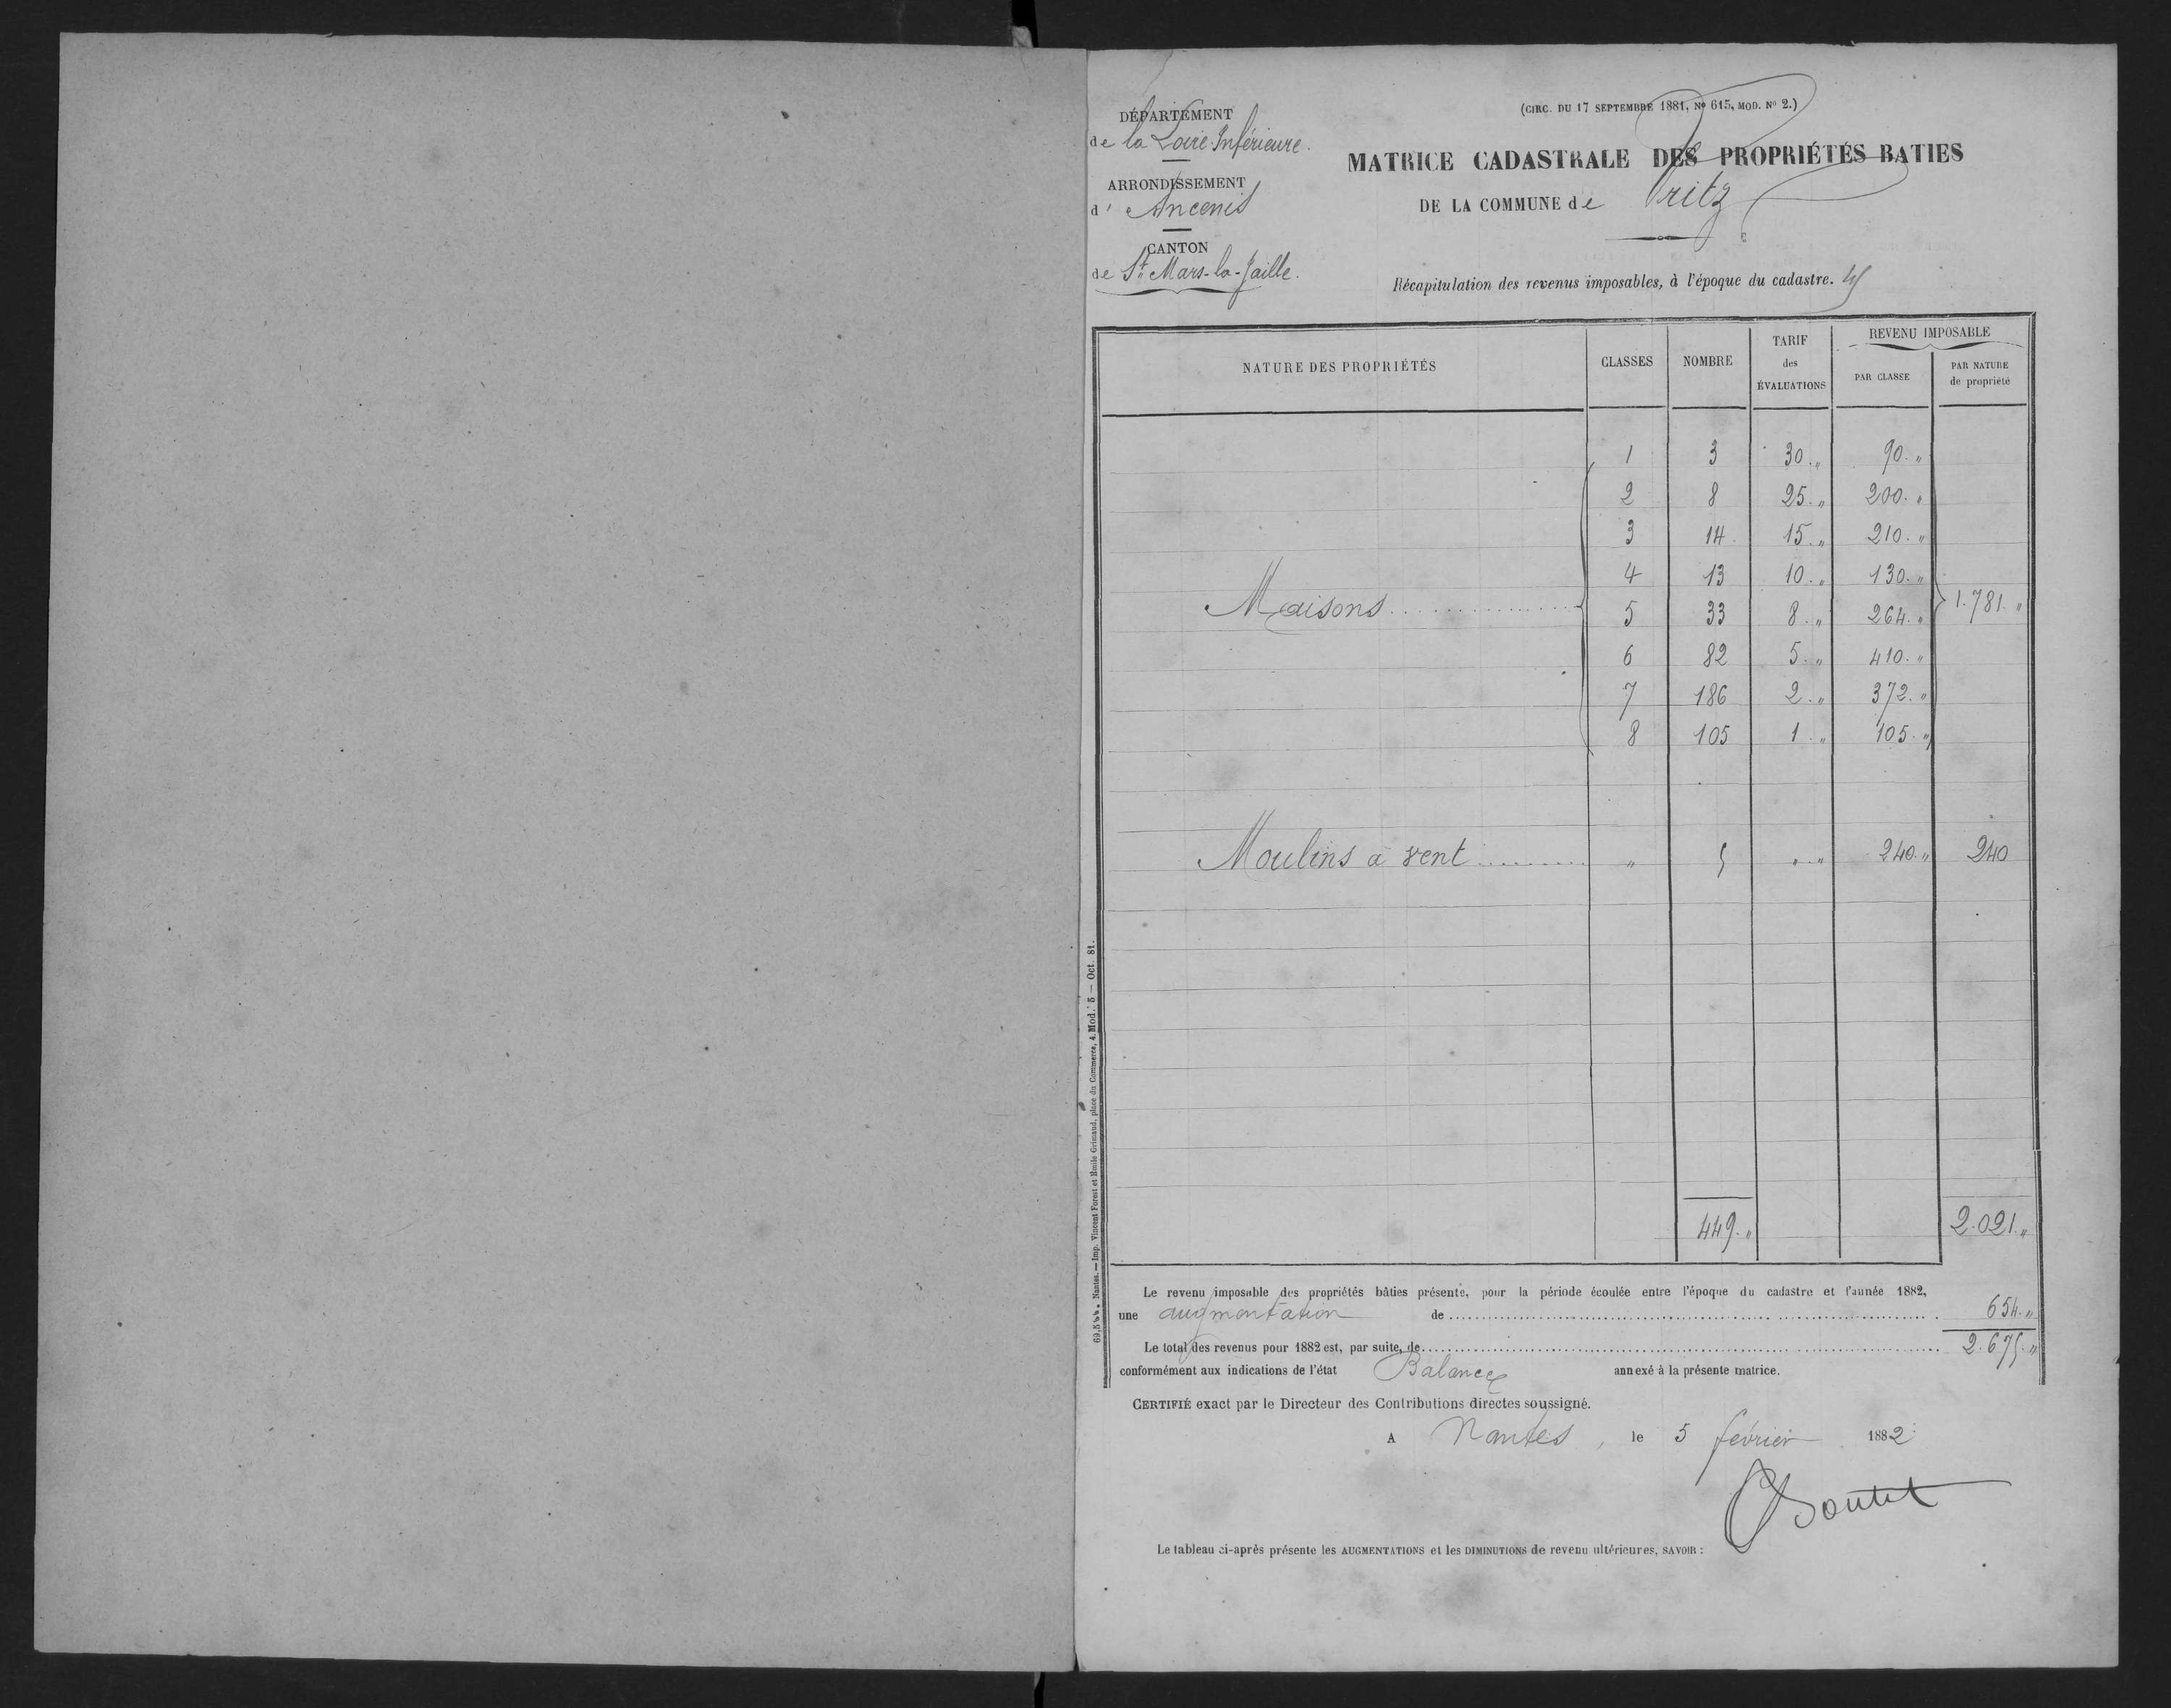 DÉPARTEMENT
de la Loire Inférieure.
ARRONDISSEMENT
d' Ancenis
CANTON
de St Mars-la-Jaille.
(CIRC. DU 17 SEPTEMBRE 1881, No 615, MOD. No 2.)
MATRICE CADASTRALE DES PROPRIÉTÉS BATIES
DE LA COMMUNE de Vritz
Récapitulation des revenus imposables, à l'époque du cadastre.
NATURE DES PROPRIÉTÉS CLASSES NOMBRE TARIF des ÉVALUATIONS REVENU IMPOSABLE PAR CLASSE PAR NATURE de propriété
1 3 30. " 90. "
2 8 25. " 200. "
3 14 15. " 210. "
4 13 10. " 130. "
Maisons 5 33 8. " 264. " 1.781. "
6 82 5. " 410. "
7 186 2. " 372. "
8 105 1. " 105. "
Moulins à vent " 5 " " 240. " 240
449. " 2.021. "
Le revenu imposable des propriétés bâties présente, pour la période écoulée entre l'époque du cadastre et l'année 1882,
une augmentation de 654. "
Le total des revenus pour 1882 est, par suite, de 2.675. "
conformément aux indications de l'état Balance annexé à la présente matrice.
CERTIFIÉ exact par le Directeur des Contributions directes soussigné.
A Nantes, le 5 février 1882
Le tableau ci-après présente les AUGMENTATIONS et les DIMINUTIONS de revenu ultérieures, SAVOIR :
Nantes. — Imp. Vincent Forest et Emile Grimaud, place du Commerce, 4. Mod. 5 — Oct. 81.